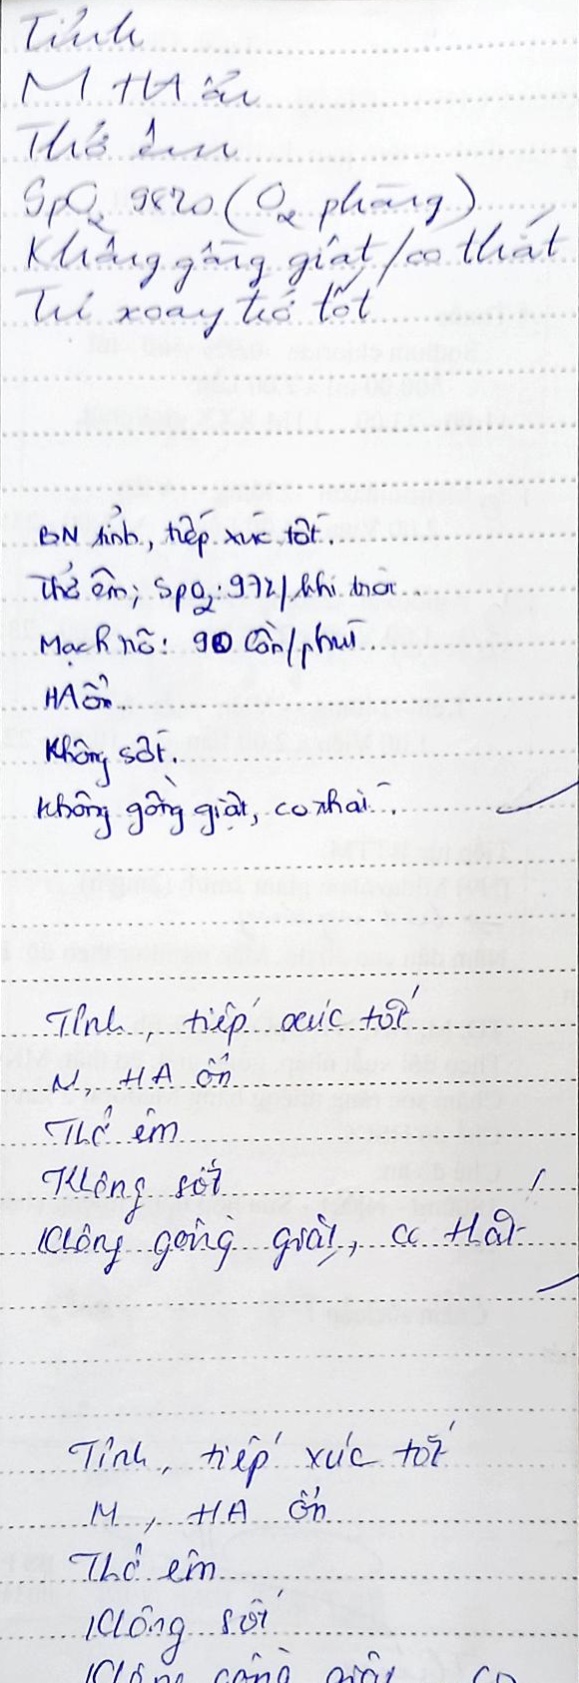 Tỉnh
M HA ổn
Thở êm
SpO2 98% (O2 phòng)
Không gồng giật / co thắt
Tự xoay trở tốt
BN tỉnh, tiếp xúc tốt.
Thở êm; SpO2: 97% / khí trời.
Mạch rõ: 90 lần/phút.
HA ổn.
Không sốt.
Không gồng giật, co thắt.
Tỉnh, tiếp xúc tốt
M, HA ổn
Thở êm
Không sốt
Không gồng giật, co thắt
Tỉnh, tiếp xúc tốt
M, HA ổn
Thở êm
Không sốt
Không gồng giật, co